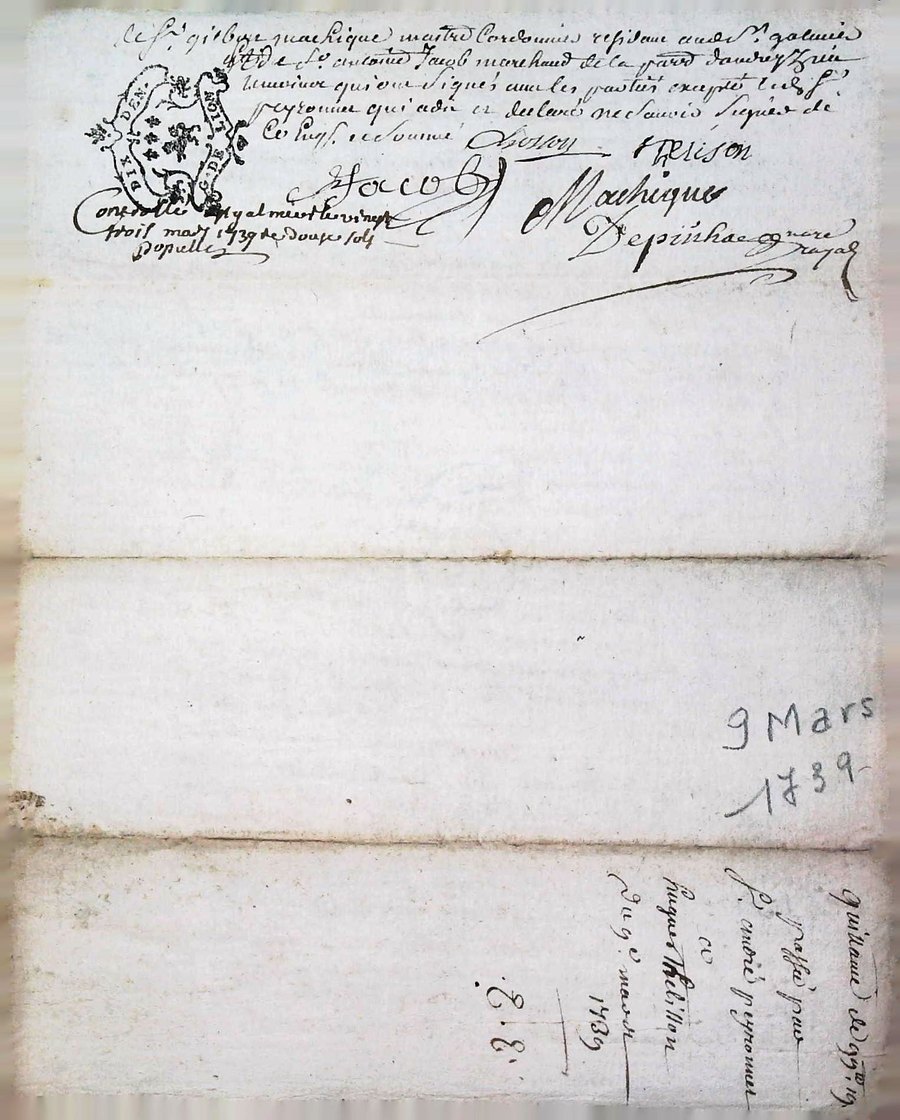 le Sr. gilbert machique maitre Cordonnier residant aud St. galmier
et de Sr. antoine Jacob marchand de la parr. dandrezieu
temoins qui ont signés avec les parties excepté led. Sr.
peyronnet qui a dit et declaré ne scavoir signer de
ce
DIX DEN.
G. DE NOIT
Chosson
Thelison
Jacob
Machique
Depinhac nore
royal
Controllé a St galmier le vingt
trois mars 1739 Rec. Douze sols
Populle
9 Mars
1739
passée par
Sr. andré peyronnet
a
hugues thelisson
Du 9e. mars
1739